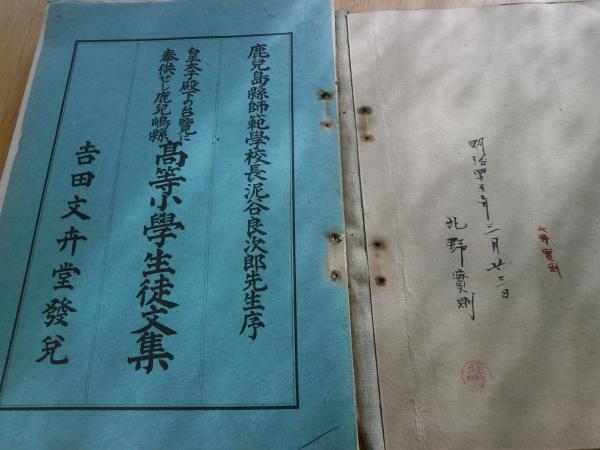 鹿兒島縣師範學校長泥谷良次郎先生序
皇太子殿下の台覽に
奉供せし鹿兒嶋縣
高等小學生徒文集
吉田文弁堂發兌
明治四十五年三月廿三日
北野實則